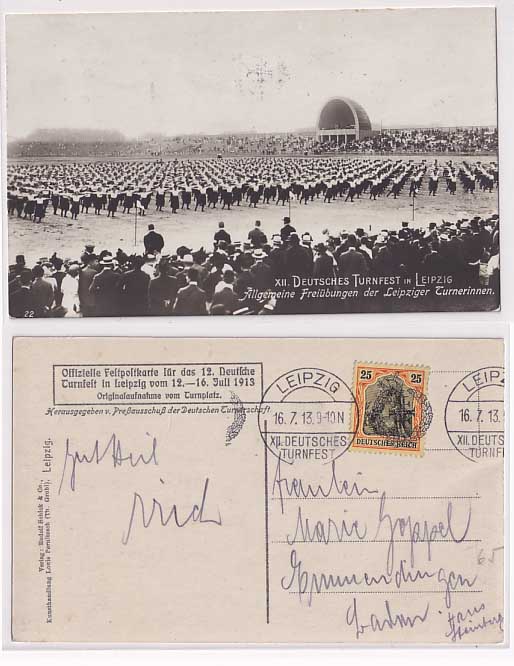 XII. DEUTSCHES TURNFEST IN LEIPZIG
Allgemeine Freiübungen der Leipziger Turnerinnen.
22
Offizielle Festpostkarte für das 12. Deutsche
Turnfest in Leipzig vom 12.—16. Juli 1913
Originalaufnahme vom Turnplatz.
Herausgegeben v. Preßausschuß der Deutschen Turnerschaft
LEIPZIG
16. 7. 13. 9-10 N
XII. DEUTSCHES
TURNFEST
25 25
DEUTSCHES REICH
LEIPZ
16. 7. 13. 9
XII. DEUTS
TURNF
Verlag: Rudolf &
Kunsthandlung Louis Pernitzsch Leipzig.
Gut Heil
Fräulein
Marie Goppel
Emmendingen
Baden.
Hans
65